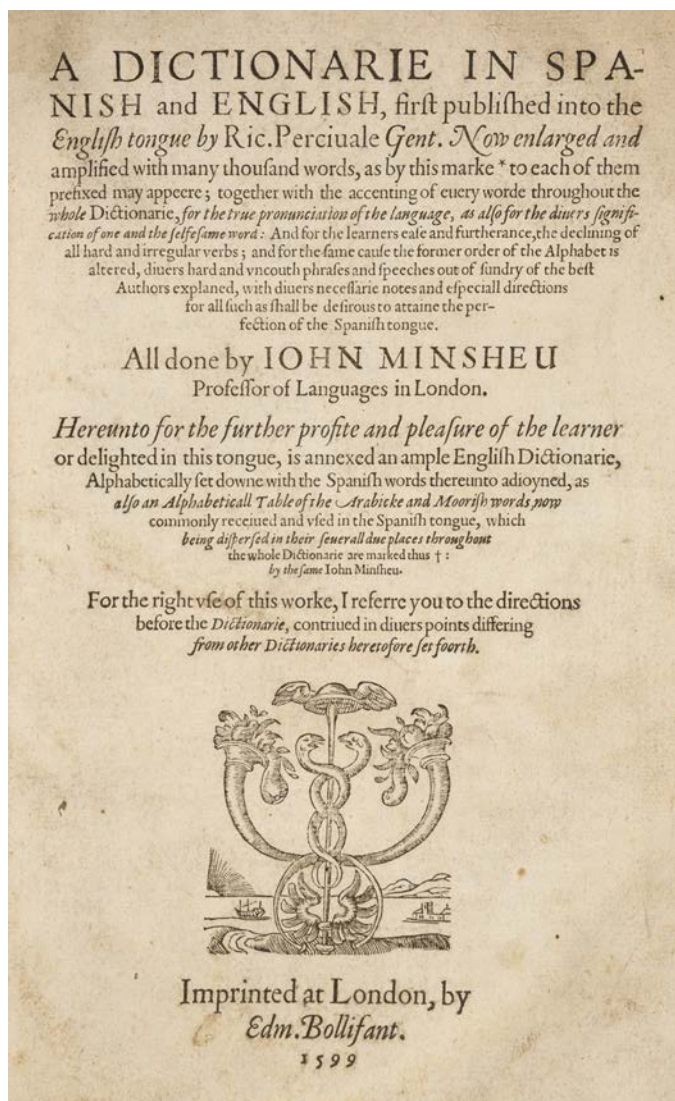 A DICTIONARIE IN SPA-
NISH and ENGLISH, firſt publiſhed into the
Engliſh tongue by Ric. Perciuale Gent. Now enlarged and
amplified with many thouſand words, as by this marke * to each of them
prefixed may appeere; together with the accenting of euery worde throughout the
whole Dictionarie, for the true pronunciation of the language, as alſo for the diuers ſignifi-
cation of one and the ſelfeſame word: And for the learners eaſe and furtherance, the declining of
all hard and irregular verbs; and for the ſame cauſe the former order of the Alphabet is
altered, diuers hard and vncouth phraſes and ſpeeches out of ſundry of the beſt
Authors explaned, with diuers neceſſarie notes and eſpeciall directions
for all ſuch as ſhall be deſirous to attaine the per-
fection of the Spaniſh tongue.
All done by IOHN MINSHEU
Profeſſor of Languages in London.
Hereunto for the further profite and pleaſure of the learner
or delighted in this tongue, is annexed an ample Engliſh Dictionarie,
Alphabetically ſet downe with the Spaniſh words thereunto adioyned, as
alſo an Alphabeticall Table of the Arabicke and Mooriſh words now
commonly receiued and vſed in the Spaniſh tongue, which
being diſperſed in their ſeuerall due places throughout
the whole Dictionarie are marked thus †:
by the ſame Iohn Minſheu.
For the right vſe of this worke, I referre you to the directions
before the Dictionarie, contriued in diuers points differing
from other Dictionaries heretofore ſet foorth.
Imprinted at London, by
Edm. Bollifant.
1599